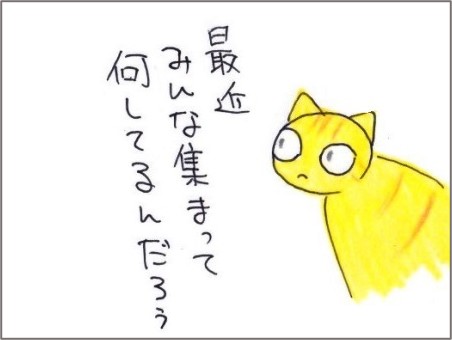 最近
みんな集まって
何してるんだろぅ